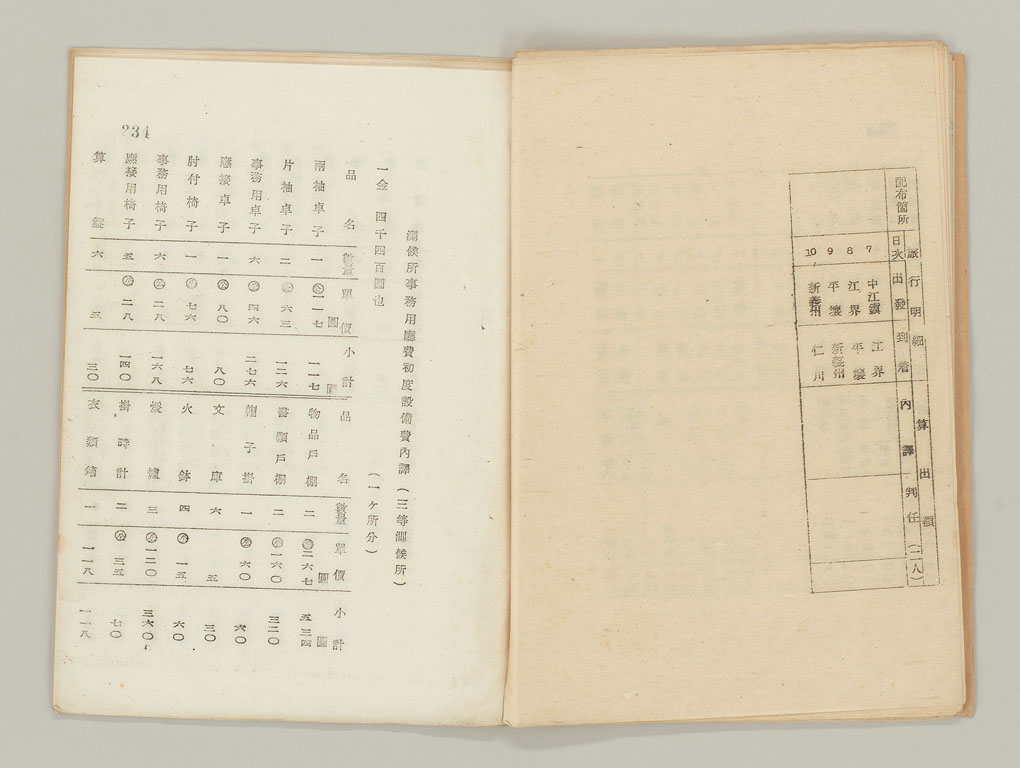 配布箇所
旅行明細
日次 出發 到着
7 中江鎭 江界
8 江界 平壤
9 平壤 新義州
10 新義州 仁川
算出額
內譯 判任(二八)
測候所事務用廳費初度設備費內譯(三等測候所)
一金 四千四百圓也 (一ケ所分)
品名 數量 單價 小計 品名 數量 單價 小計
圓 圓 圓 圓
兩袖卓子 一 公一一七 一一七 物品戶棚 二 公二六七 五三四
片袖卓子 二 公六三 一二六 書類戶棚 二 公一六〇 三二〇
事務用卓子 六 公四六 二七六 帽子掛 一 公六〇 六〇
應接卓子 一 公八〇 八〇 文庫 六 五 三〇
肘付椅子 一 公七六 七六 火鉢 四 公一五 六〇
事務用椅子 六 公二八 一六八 煖爐 三 公一二〇 三六〇
應接用椅子 五 公二八 一四〇 掛時計 二 公三五 七〇
算盤 六 五 三〇 衣類箱 一 一一八 一一八
234